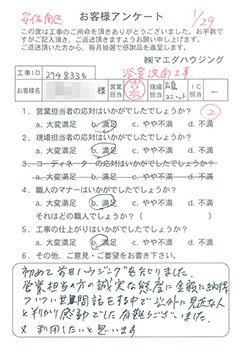 安佐南区
お客様アンケート
1/29
この度は工事のご用命を頂きありがとうございました。お手数で
すがご記入頂き、ご返送頂きますようお願い申し上げます。
ご返送頂いた方から、毎月抽選で感謝品を進呈します。
㈱マエダハウジング
工事ID 2748336 工事
様 営業担当 現場担当 IC担当 -
1. 営業担当者の応対はいかがでしたでしょうか?
a. 大変満足 b. 満足 c. やや不満 d. 不満
2. 現場担当者の応対はいかがでしたでしょうか?
a. 大変満足 b. 満足 c. やや不満 d. 不満
3. コーディネーターの応対はいかがでしたでしょうか?
a. 大変満足 b. 満足 c. やや不満 d. 不満
4. 職人のマナーはいかがでしたでしょうか?
a. 大変満足 b. 満足 c. やや不満 d. 不満
それはどの職人でしょうか?( )
5. 工事の仕上がりはいかがでしたでしょうか?
a. 大変満足 b. 満足 c. やや不満 d. 不満
6. その他、ご意見・ご要望をお書き下さい。
初めて前田ハウジングを知りました。
営業担当の方の誠実な態度に金額に納得
ついつい世間話をする中で 以外に身近な人
と判かり感動でした 有難うございました。
又 利用したいと思います